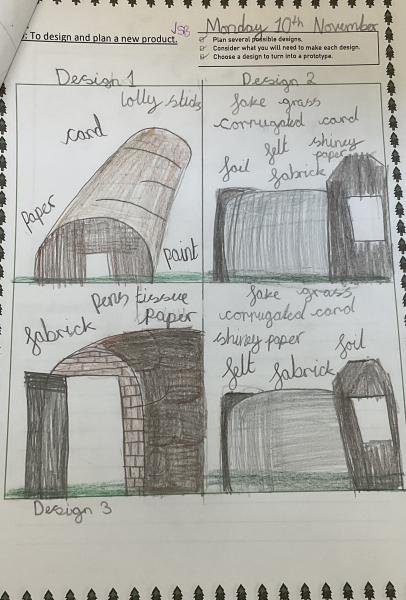 JSB Monday 10th November
: To design and plan a new product.
Plan several possible designs.
Consider what you will need to make each design.
Choose a design to turn into a prototype.
Design 1
lolly sticks
card
paper
paint
Design 2
fake grass
corrugated card
felt shiney
paper
foil fabrick
pens tissue
paper
fabrick
Design 3
fake grass
corrugated card
shiney paper foil
felt fabrick